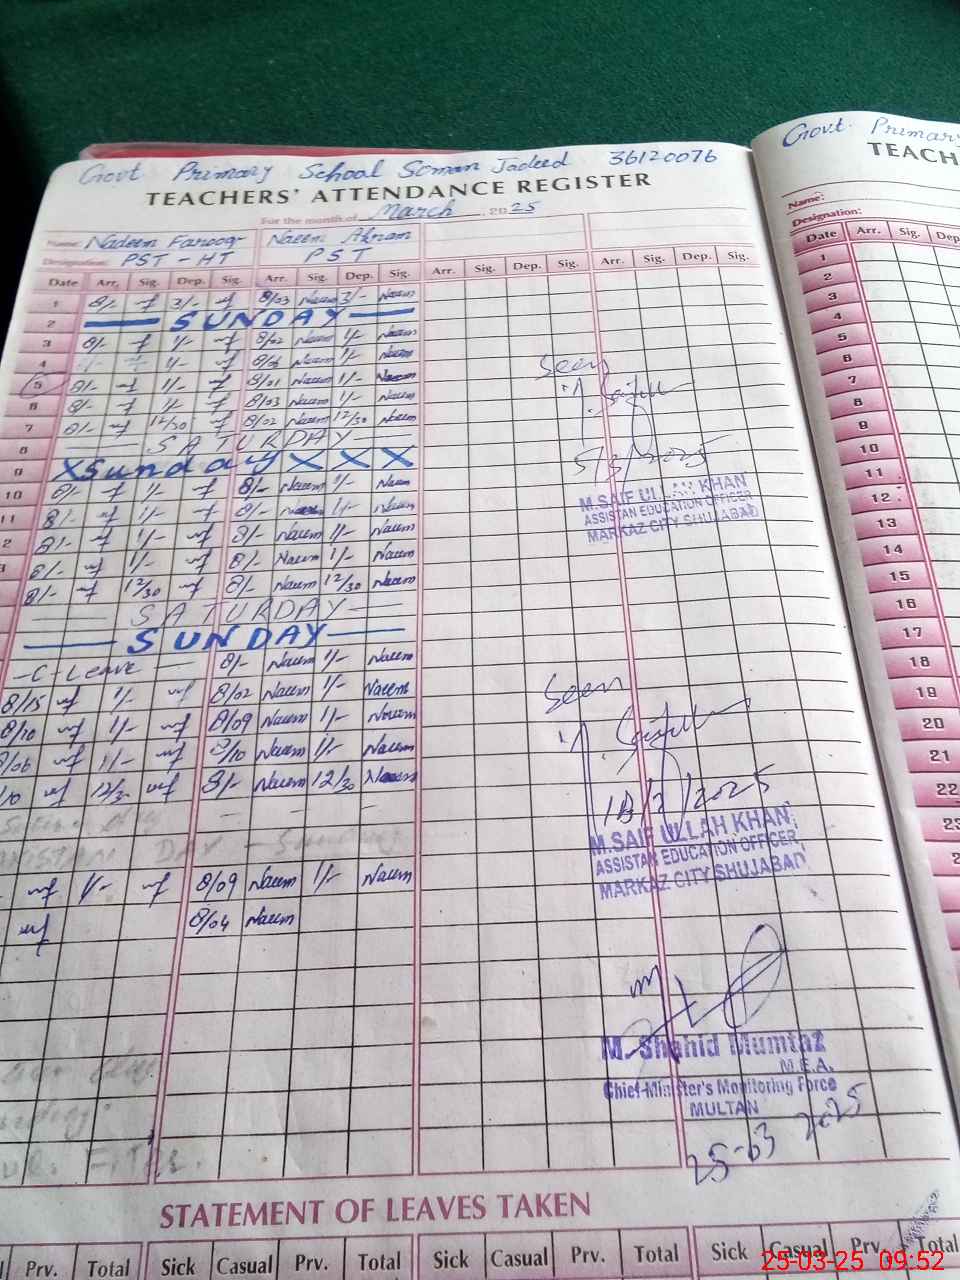 Govt Primary School Soman Jadeed 36120076
TEACHERS' ATTENDANCE REGISTER
For the month of March, 2025
Name: Nadeem Farooq Naeem Akram
Designation: PST - HT PST
Date Arr. Sig. Dep. Sig. Arr. Sig. Dep. Sig. Arr. Sig. Dep. Sig. Arr. Sig. Dep. Sig.
1 8/- 3/- 8/03 Naeem 3/- Naeem
2 SUNDAY
3 8/- 1/- 8/02 Naeem 1/- Naeem
4 1/- 8/06 Naeem 1/- Naeem
5 8/- 1/- 8/01 Naeem 1/- Naeem
6 8/- 1/- 8/03 Naeem 1/- Naeem
7 8/- 12/30 8/02 Naeem 12/30 Naeem
8 SATURDAY
9 X Sunday X X X
10 8/- 1/- 8/- Naeem 1/- Naeem
11 8/- 1/- 8/- Naeem 1/- Naeem
2 8/- 1/- 8/- Naeem 1/- Naeem
8/- 1/- 8/- Naeem 1/- Naeem
8/- 12/30 8/- Naeem 12/30 Naeem
SATURDAY
SUNDAY
-C-Leave - 8/- Naeem 1/- Naeem
8/15 1/- 8/02 Naeem 1/- Naeem
8/10 1/- 8/09 Naeem 1/- Naeem
8/06 1/- 8/10 Naeem 1/- Naeem
/10 12/30 8/- Naeem 12/30 Naeem
DAY - Sunday
1/- 8/09 Naeem 1/- Naeem
8/04 Naeem
Seen
5/3/2025
M.SAIF ULLAH KHAN
ASSISTAN EDUCATION OFFICER
MARKAZ CITY SHUJABAD
Seen
18/3/2025
M.SAIF ULLAH KHAN
ASSISTAN EDUCATION OFFICER,
MARKAZ CITY SHUJABAD,
M. Shahid Mumtaz
M.E.A.
Chief-Minister's Monitoring Force
MULTAN
25-03 2025
STATEMENT OF LEAVES TAKEN
Prv. Total Sick Casual Prv. Total Sick Casual Prv. Total Sick Casual Prv. Total
Govt. Primary
TEACH
Name:
Designation:
Date Arr. Sig. Dep
1
2
3
4
5
6
7
8
9
10
11
12
13
14
15
16
17
18
19
20
21
22
23
2
25-03-25 09:52